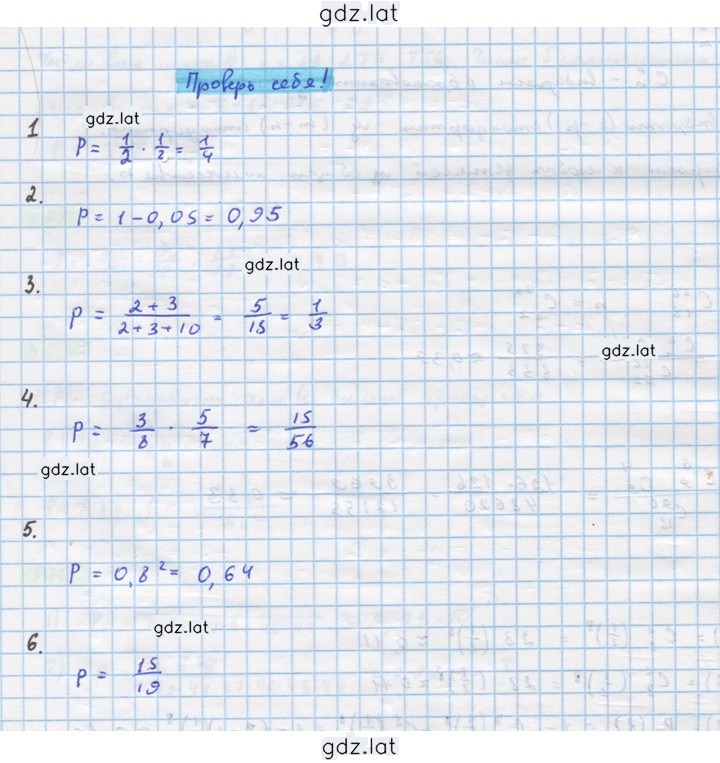 gdz.lat
Проверь себя!
gdz.lat
1 P = 1/2 · 1/2 = 1/4
2. P = 1 - 0,05 = 0,95
gdz.lat
3. P = (2+3)/(2+3+10) = 5/15 = 1/3
gdz.lat
4. P = 3/8 · 5/7 = 15/56
gdz.lat
5. P = 0,8² = 0,64
gdz.lat
6. P = 15/19
gdz.lat